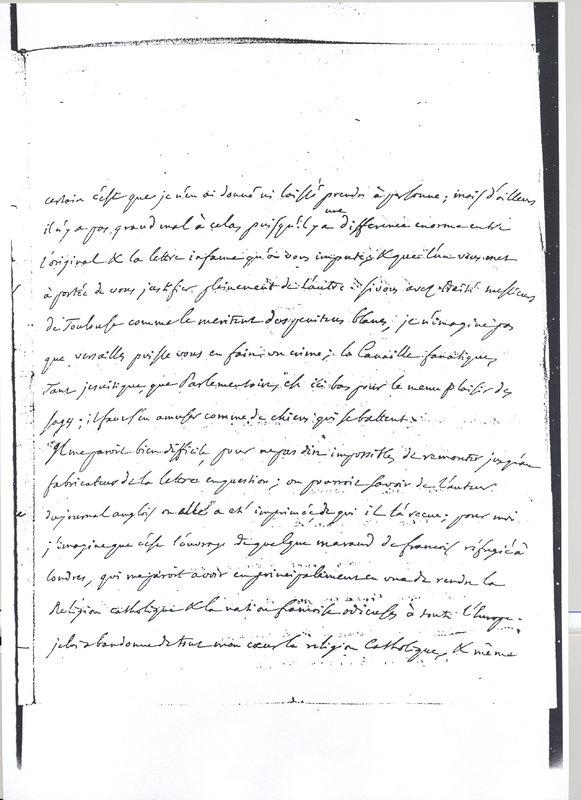 certain c'est que je n'en ai donné ni laissé prendre à personne; mais d'ailleurs
il n'y a pas grand mal à cela, puisqu'il y a une difference enorme entre
l'original & la lettre infame qu'on vous impute, & que l'une vous met
à portée de vous justifier pleinement de l'autre. si vous avez traité messieurs
de Toulouse comme le meritent des penitens blancs, je n'imagine pas
que versailles puisse vous en faire un crime; la Canaille fanatique,
Tant jesuitique que Parlementaire, est ici bas pour le menu plaisir des
sages; il faut s'en amuser comme de chiens qui se battent.
Il me paroit bien difficile, pour ne pas dire impossible, de remonter jusqu'au
fabricateur de la lettre en question; on pourroit savoir de l'auteur
du journal anglois où elle a eté imprimée de qui il l'a recue; pour moi
j'imagine que c'est l'ouvrage de quelque maraud de francois réfugié à
londres, qui me paroit avoir eu principalement en vue de rendre la
Religion catholique & la nation francoise odieuses à toute l'Europe.
je lui abandonne de tout mon cœur la religion Catholique, & même